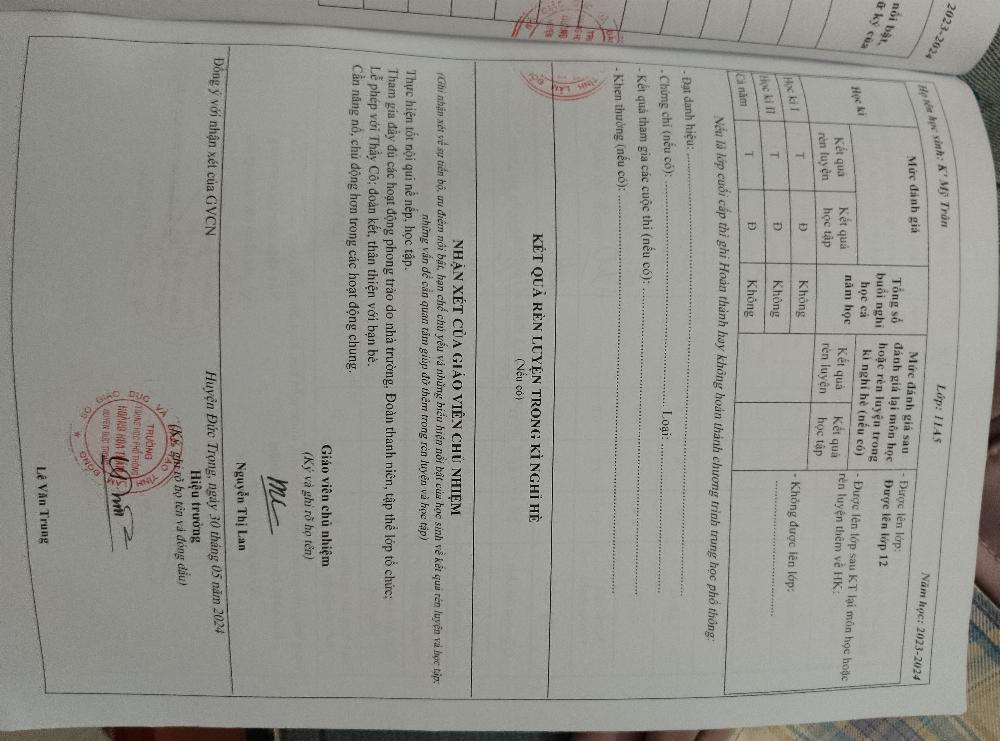 2023-2024
nổi bật,
ữ ký của
Họ tên học sinh: K' Mỹ Trân Lớp: 11A5 Năm học: 2023-2024
Học kì
Mức đánh giá
Kết quả rèn luyện
Kết quả học tập
Tổng số buổi nghỉ học cả năm học
Mức đánh giá sau đánh giá lại môn học hoặc rèn luyện trong kì nghỉ hè (nếu có)
Kết quả rèn luyện
Kết quả học tập
Học kì I T Đ Không
Học kì II T Đ Không
Cả năm T Đ Không
- Được lên lớp:
Được lên lớp 12
- Được lên lớp sau KT lại môn học hoặc
rèn luyện thêm về HK:
- Không được lên lớp:
Nếu là lớp cuối cấp thì ghi Hoàn thành hay không hoàn thành chương trình trung học phổ thông:
- Đạt danh hiệu:
- Chứng chỉ (nếu có): Loại:
- Kết quả tham gia các cuộc thi (nếu có):
- Khen thưởng (nếu có):
KẾT QUẢ RÈN LUYỆN TRONG KÌ NGHỈ HÈ
(Nếu có)
NHẬN XÉT CỦA GIÁO VIÊN CHỦ NHIỆM
(Ghi nhận xét về sự tiến bộ, ưu điểm nổi bật, hạn chế chủ yếu và những biểu hiện nổi bật của học sinh về kết quả rèn luyện và học tập;
những vấn đề cần quan tâm giúp đỡ thêm trong rèn luyện và học tập)
Thực hiện tốt nội qui nề nếp, học tập.
Tham gia đầy đủ các hoạt động phong trào do nhà trường, Đoàn thanh niên, tập thể lớp tổ chức;
Lễ phép với Thầy Cô; đoàn kết, thân thiện với bạn bè.
Cần năng nổ, chủ động hơn trong các hoạt động chung.
Giáo viên chủ nhiệm
(Ký và ghi rõ họ tên)
Nguyễn Thị Lan
Đồng ý với nhận xét của GVCN
Huyện Đức Trọng, ngày 30 tháng 05 năm 2024
Hiệu trưởng
(Ký, ghi rõ họ tên và đóng dấu)
TRƯỜNG
TRUNG HỌC PHỔ THÔNG
Lê Văn Trung